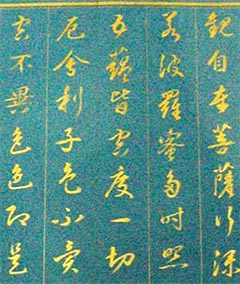 觀自在菩薩行深
若波羅蜜多時照
五蘊皆空度一切
厄舍利子色不異
空不異色色即是